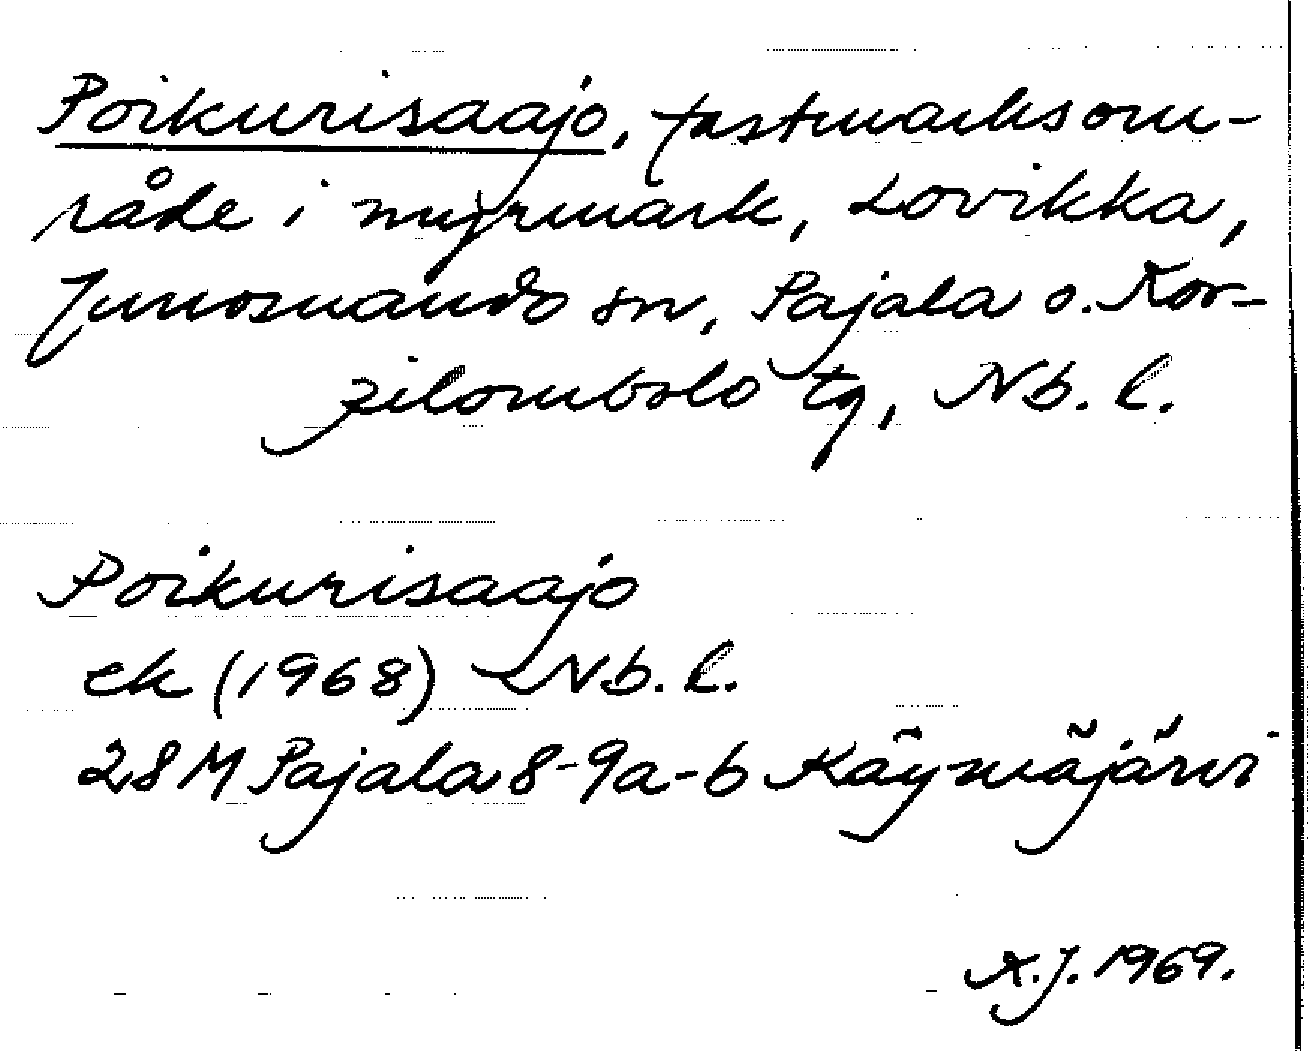 Poikurisaajo, fastmarksom-
råde i myrmark, Lovikka,
Junosuando sn, Pajala o. Kor-
pilombolo tg, Nb. l.
Poikurisaajo
ek (1968) Nb. l.
28 M Pajala 8-9a-b Käymäjärvi
A.J. 1969.